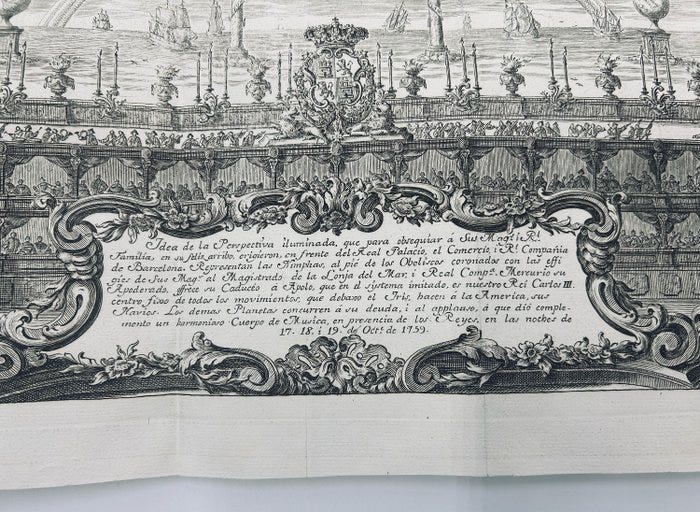 Idea de la Perspectiva iluminada, que para obsequiar á Sus Mag.s i R.l
Familia, en su feliz arribo, erigieron, en frente del Real Palacio, el Comercio, i R.l Compañia
de Barcelona. Representan las Nimphas, al pié de los Obeliscos coronados con las effi
gies de Sus Mag.s al Magistrado de la Lonja del Mar, i Real Comp.a Mercurio su
Apoderado, offrece su Caduceo á Apolo, que en el sistema imitado, es nuestro Rei Carlos III.
centro fixo de todos los movimientos, que debaxo el Iris, hacen á la America, sus
Navios. Los demas Planetas concurren à su deuda, i al applauso, á que dió comple-
mento un harmonioso Cuerpo de Musica, en presencia de los Reyes, en las noches de
17. 18. i 19. de Oct.e de 1759.